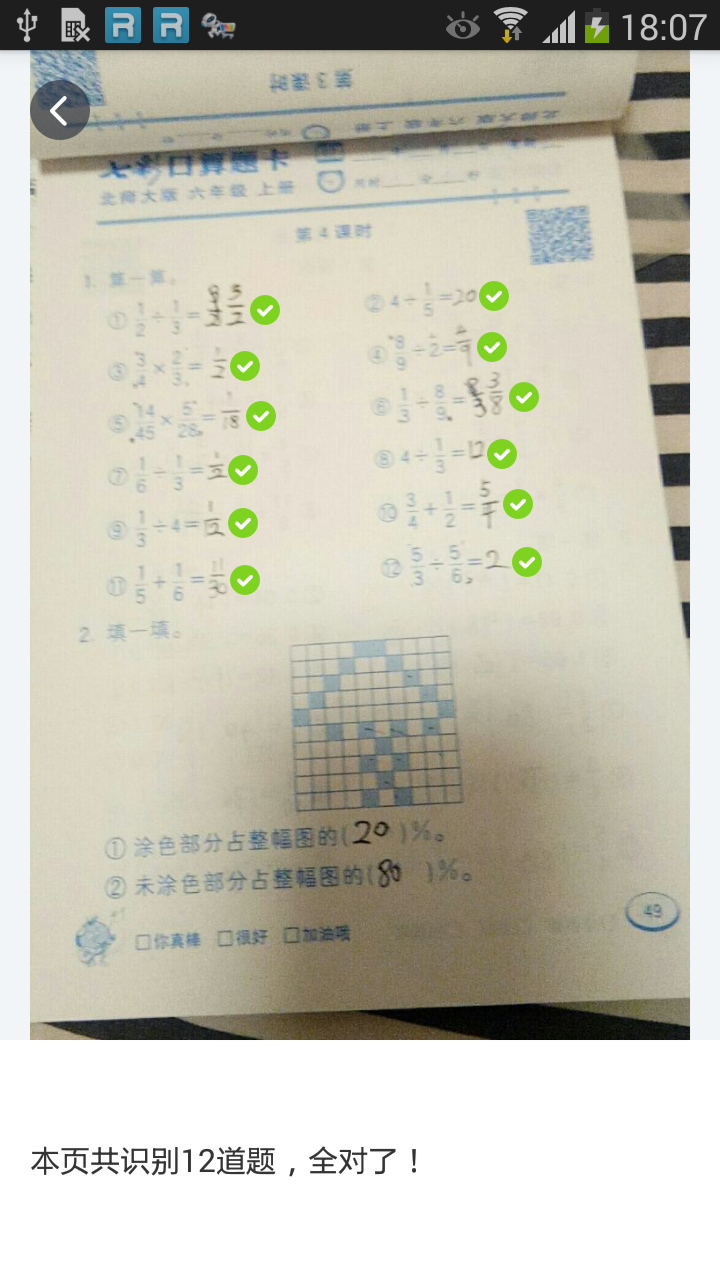 18:07
七彩口算题卡
北师大版 六年级 上册
第4课时
1. 算一算。
① 1/2 ÷ 1/3 = 3/2
② 4 ÷ 1/5 = 20
③ 3/4 × 2/3 = 1/2
④ 8/9 ÷ 2 = 4/9
⑤ 14/45 × 5/28 = 1/18
⑥ 1/3 ÷ 8/9 = 3/8
⑦ 1/6 ÷ 1/3 = 1/2
⑧ 4 ÷ 1/3 = 12
⑨ 1/3 ÷ 4 = 1/12
⑩ 3/4 + 1/2 =
⑪ 1/5 + 1/6 = 11/30
⑫ 5/3 ÷ 5/6 = 2
2. 填一填。
① 涂色部分占整幅图的(20)%。
② 未涂色部分占整幅图的(80)%。
□你真棒 □很好 □加油哦
49
本页共识别12道题，全对了！